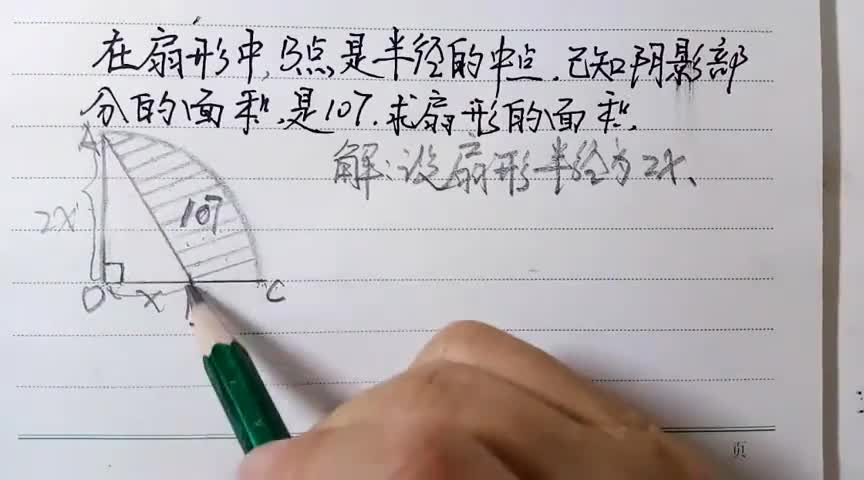 在扇形中,B点是半径的中点.已知阴影部
分的面积,是107.求扇形的面积.
解:设扇形半径为2x、
A
2X
107
O
X
C
页